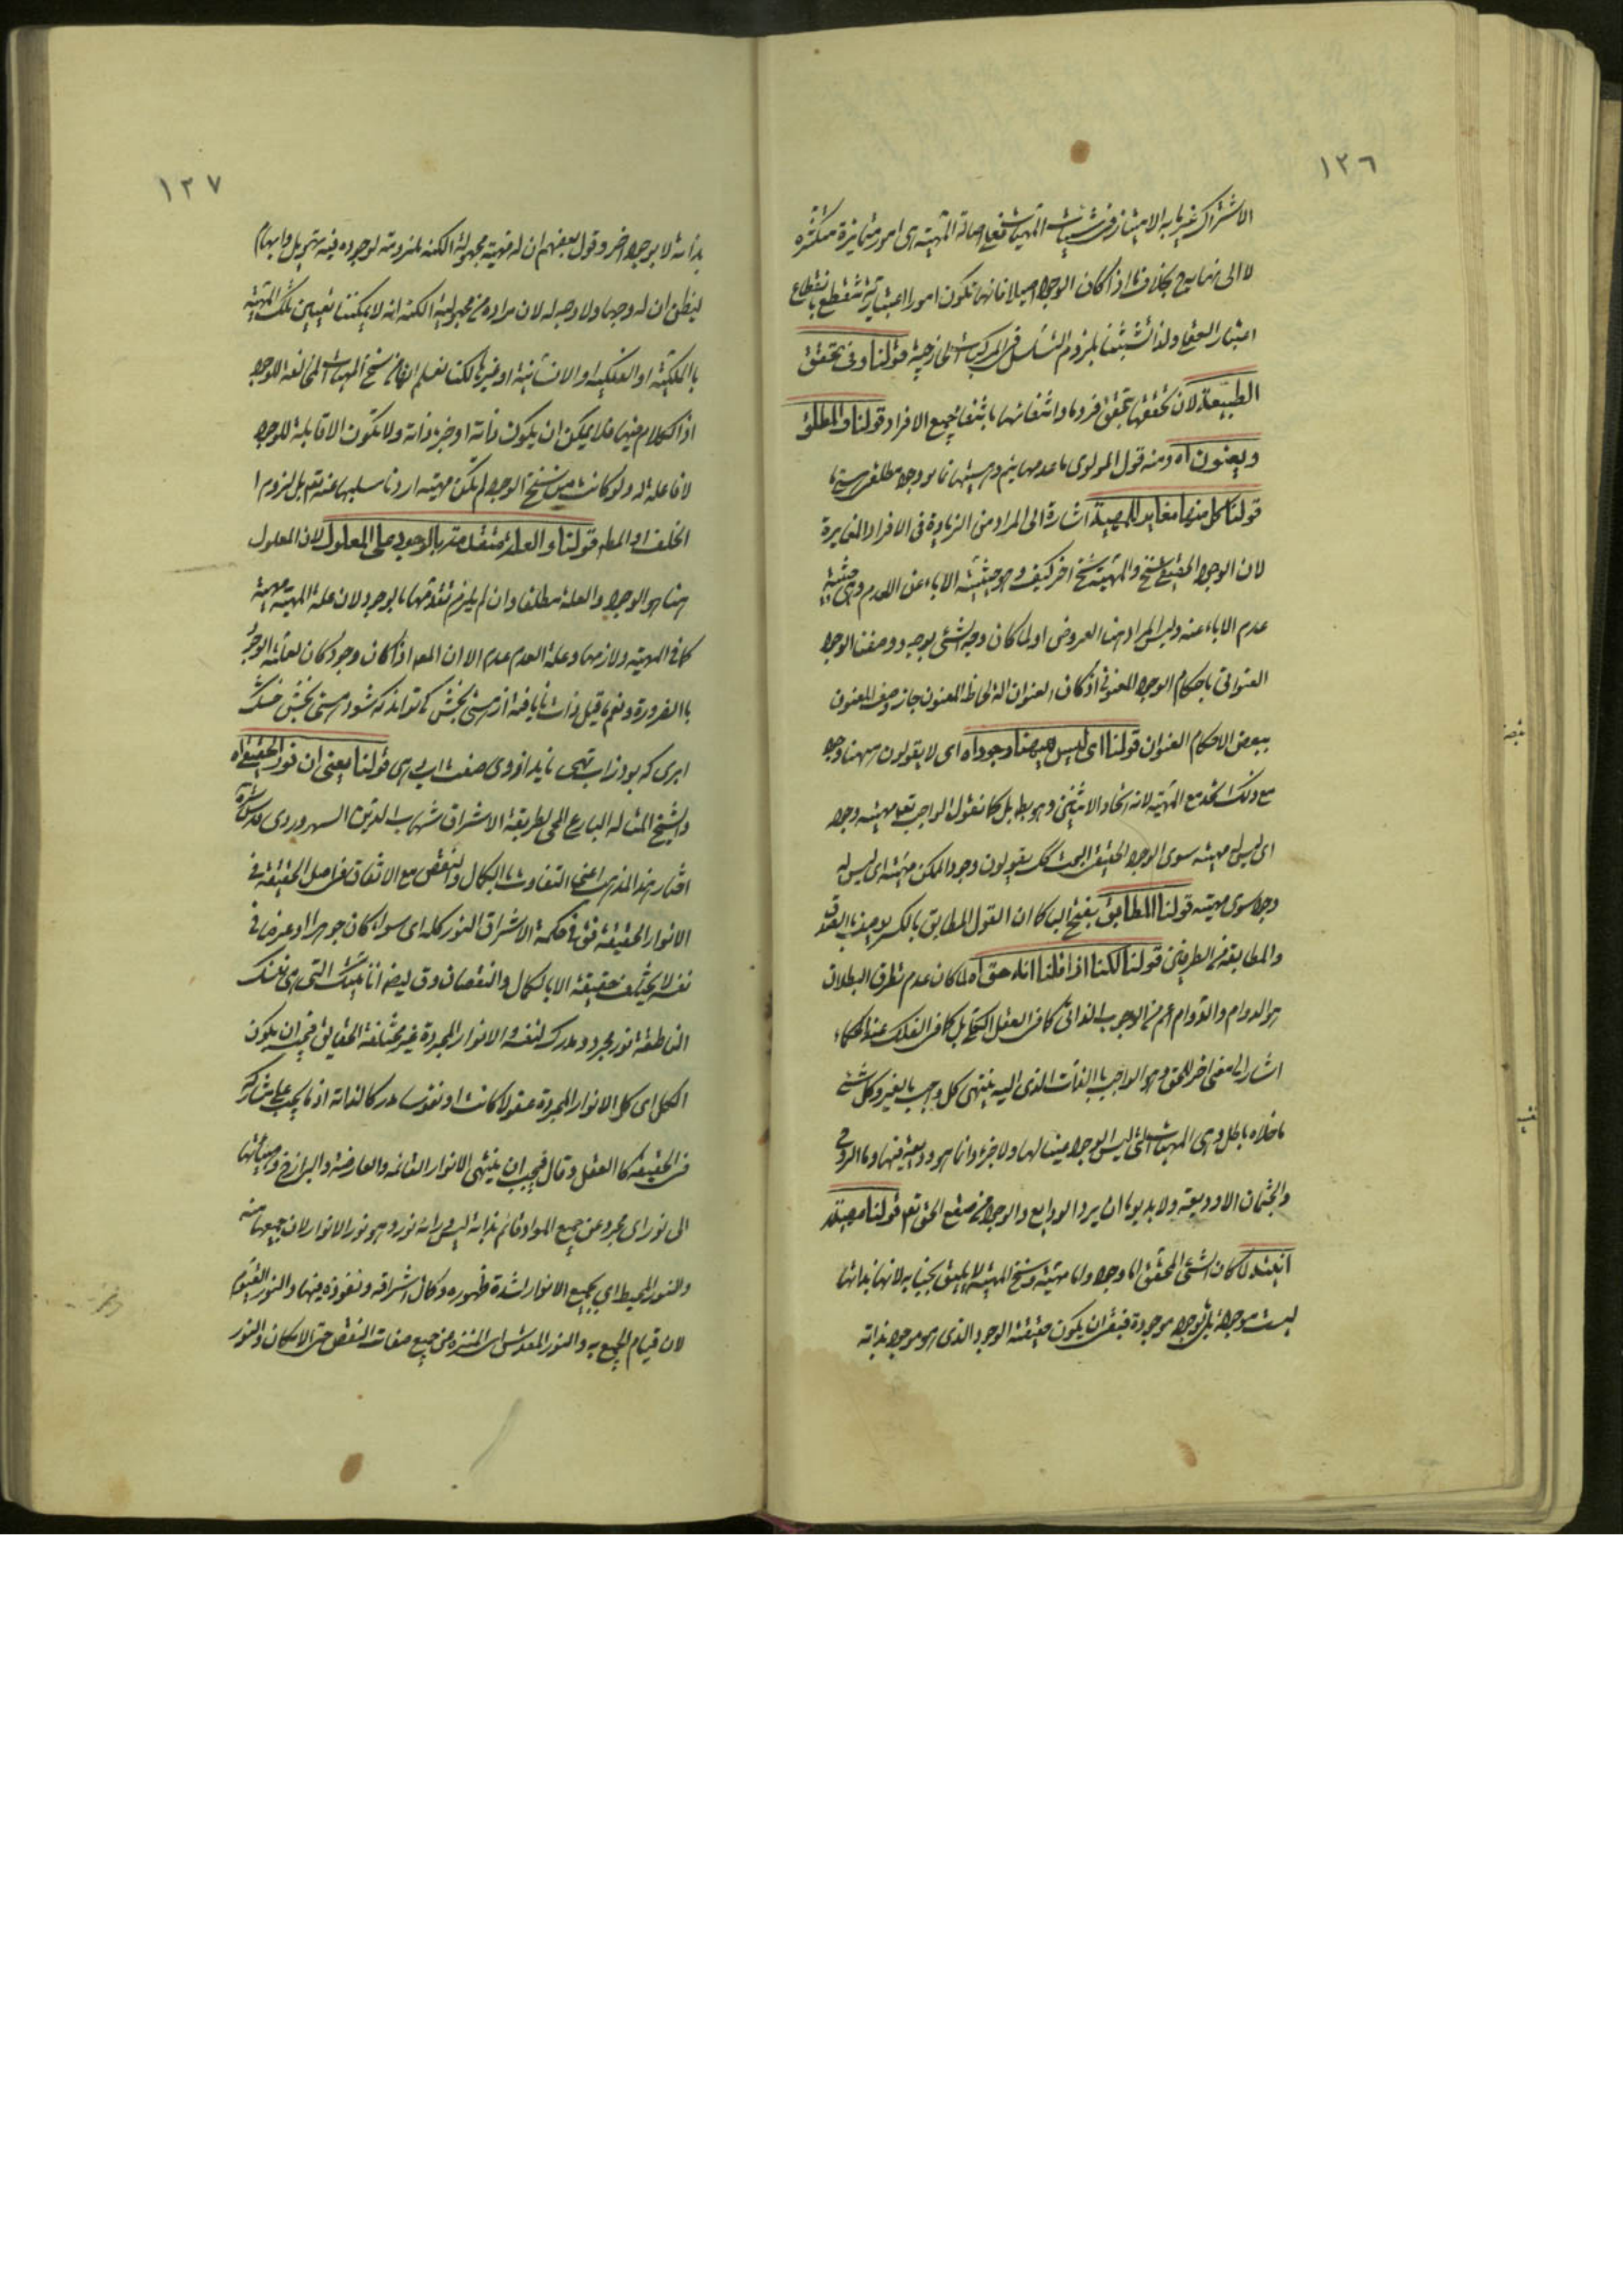 ١٢٦
الاشتراك غير ما به الامتياز فى شيئيات المهيات فعلى اصالة المهية اى امور متمايزة متكثرة
لا الى نهاية بخلاف ما اذا كان الوجود اصيلا فانها تكون امورا اعتبارية تنقطع بانقطاع
اعتبار العقل ولذا تشبثنا بلزوم التسلسل فى المركبات الخارجية قولنا وفى تحقق
الطبيعة لان تحققها بتحقق فرد ما وانتفائها بانتفاء جميع الافراد قولنا والمطلق
ويعنون اه ومنه قول المولوى ما عدمهاييم وهستيها نما تو وجود مطلق هستى ما
قولنا كل منها مغاير للمهية اشارة الى المراد من الزيادة فى الافراد المغايرة
لان الوجود الحقيقى سنخ والمهية سنخ اخر كيف وهو حيثية الاباء عن العدم وهى حيثية
عدم الاباء عنه وليس المراد هنا العروض او لما كان وجه الشئ بوجه ووصفنا الوجود
العنوانى باحكام الوجود المعنون اذ كان العنوان الة لحاظ المعنون جاز وصف المعنون
ببعض الاحكام العنوان قولنا اى ليس هيهنا وجود اه اى لا يقولون هيهنا وجود
مع ذلك اتحد مع المهية لانه اتحاد الاثنين وهو بط بل كما نقول الواجب تعم مهيته وجود
اى ليس له مهية سوى الوجود الحقيقى البحت كك يقولون وجود الممكن مهيته اى ليس له
وجود سوى مهيته قولنا المطابق بفتح الباء كما ان القول المطابق بالكسر يوصف بالصدق
والمطابقة من الطرفين قولنا لكنا اذا قلنا انه حق اه لما كان عدم تطرق البطلان
هو الدوام والدوام اعم من الوجوب الذاتى كما فى العقل الكلى بل كما فى الفلك عند الحكماء
اشار الى معنى اخر للحق وهو الواجب بالذات الذى اليه ينتهى كل واجب بالغير وكل شئ
ما خلاه باطل وهى المهيات التى ليس الوجود عينا لها ولا جزء وانما هو وديعة فيها وما الروح
والجثمان الا وديعة ولا بد يوما ان يرد الودايع والوجود من صقع الحق تعم قولنا مهيته
انيته لما كان الشئ المحقق اما وجود واما مهية وسنخ المهية لا يليق بجنابه لانها بذاتها
ليست موجودة بل بالوجود موجودة فبقى ان يكون حقيقته الوجود الذى هو موجود بذاته
١٢٧
بذاته لا بوجود اخر وقول بعضهم ان له مهية مجهولة الكنه ملزومة لوجوده فيه تهويل وابهام
ليظن ان له وجها ولا وجه له لان مراده من مجهولية الكنه انه لا يمكننا تعيين تلك المهية
بالملكية او الفلكية او الانسانية او غيرها لكنا نعلم انها من سنخ المهيات المخالفة للوجود
اذ الكلام فيها فلا يمكن ان يكون ذاته او جزء ذاته ولا تكون الا قابلة للوجود
لا فاعلة له ولو كانت من سنخ الوجود لم تكن مهية اردنا سلبها عنه تعم بل لزوم ا
الخلف او المط قولنا والعلة متقدمة بالوجود على المعلول لان المعلول
هنا هو الوجود والعلة مطلقا وان لم يلزم تقدمها بالوجود لان علة المهية مهية
كما فى المهية ولازمها وعلة العدم عدم الا ان المع اذا كان وجود كان لعلته الوجود
بالضرورة ونعم ما قيل ذات نايافته از هستى بخش كى تواند كه شود هستى بخش خشك
ابرى كه بود ز اب تهى نايد از وى صفت اب دهى قولنا يعنى ان نور الحقيقى اه
والشيخ المتاله البارع المحيى لطريقة الاشراق شهاب الدين السهروردى قدس سره
اختار هذا المذهب اعنى التفاوت بالكمال والنقص مع الاتفاق فى اصل الحقيقة فى
الانوار الحقيقية فق فى حكمة الاشراق النور كله اى سواء كان جوهرا او عرضا فى
نفسه لا يختلف حقيقته الا بالكمال والنقصان وق ليضا انائيتك التى هى نفسك
الناطقة نور مجرد ومدرك لنفسه والانوار المجردة غير مختلفة الحقايق فيجب ان يكون
الكل اى كل الانوار المجردة عقولا كانت او نفوسا مدركا لذاته اذ ما يجب على مشاركه
فى الحقيقة كالعقل وقال فيجب ان ينتهى الانوار القائمة والعارضة والبرازخ وهيئاتها
الى نور اى مجرد عن جميع المواد قائم بذاته ليس وراءه نور وهو نور الانوار لان جميعها منه
والنور المحيط اى بجميع الانوار لشدة ظهوره وكمال اشراقه ونفوذه فيها والنور القيوم
لان قيام الجميع به والنور المقدس اى المنزه من جميع صفات النقص حتى الامكان والنور